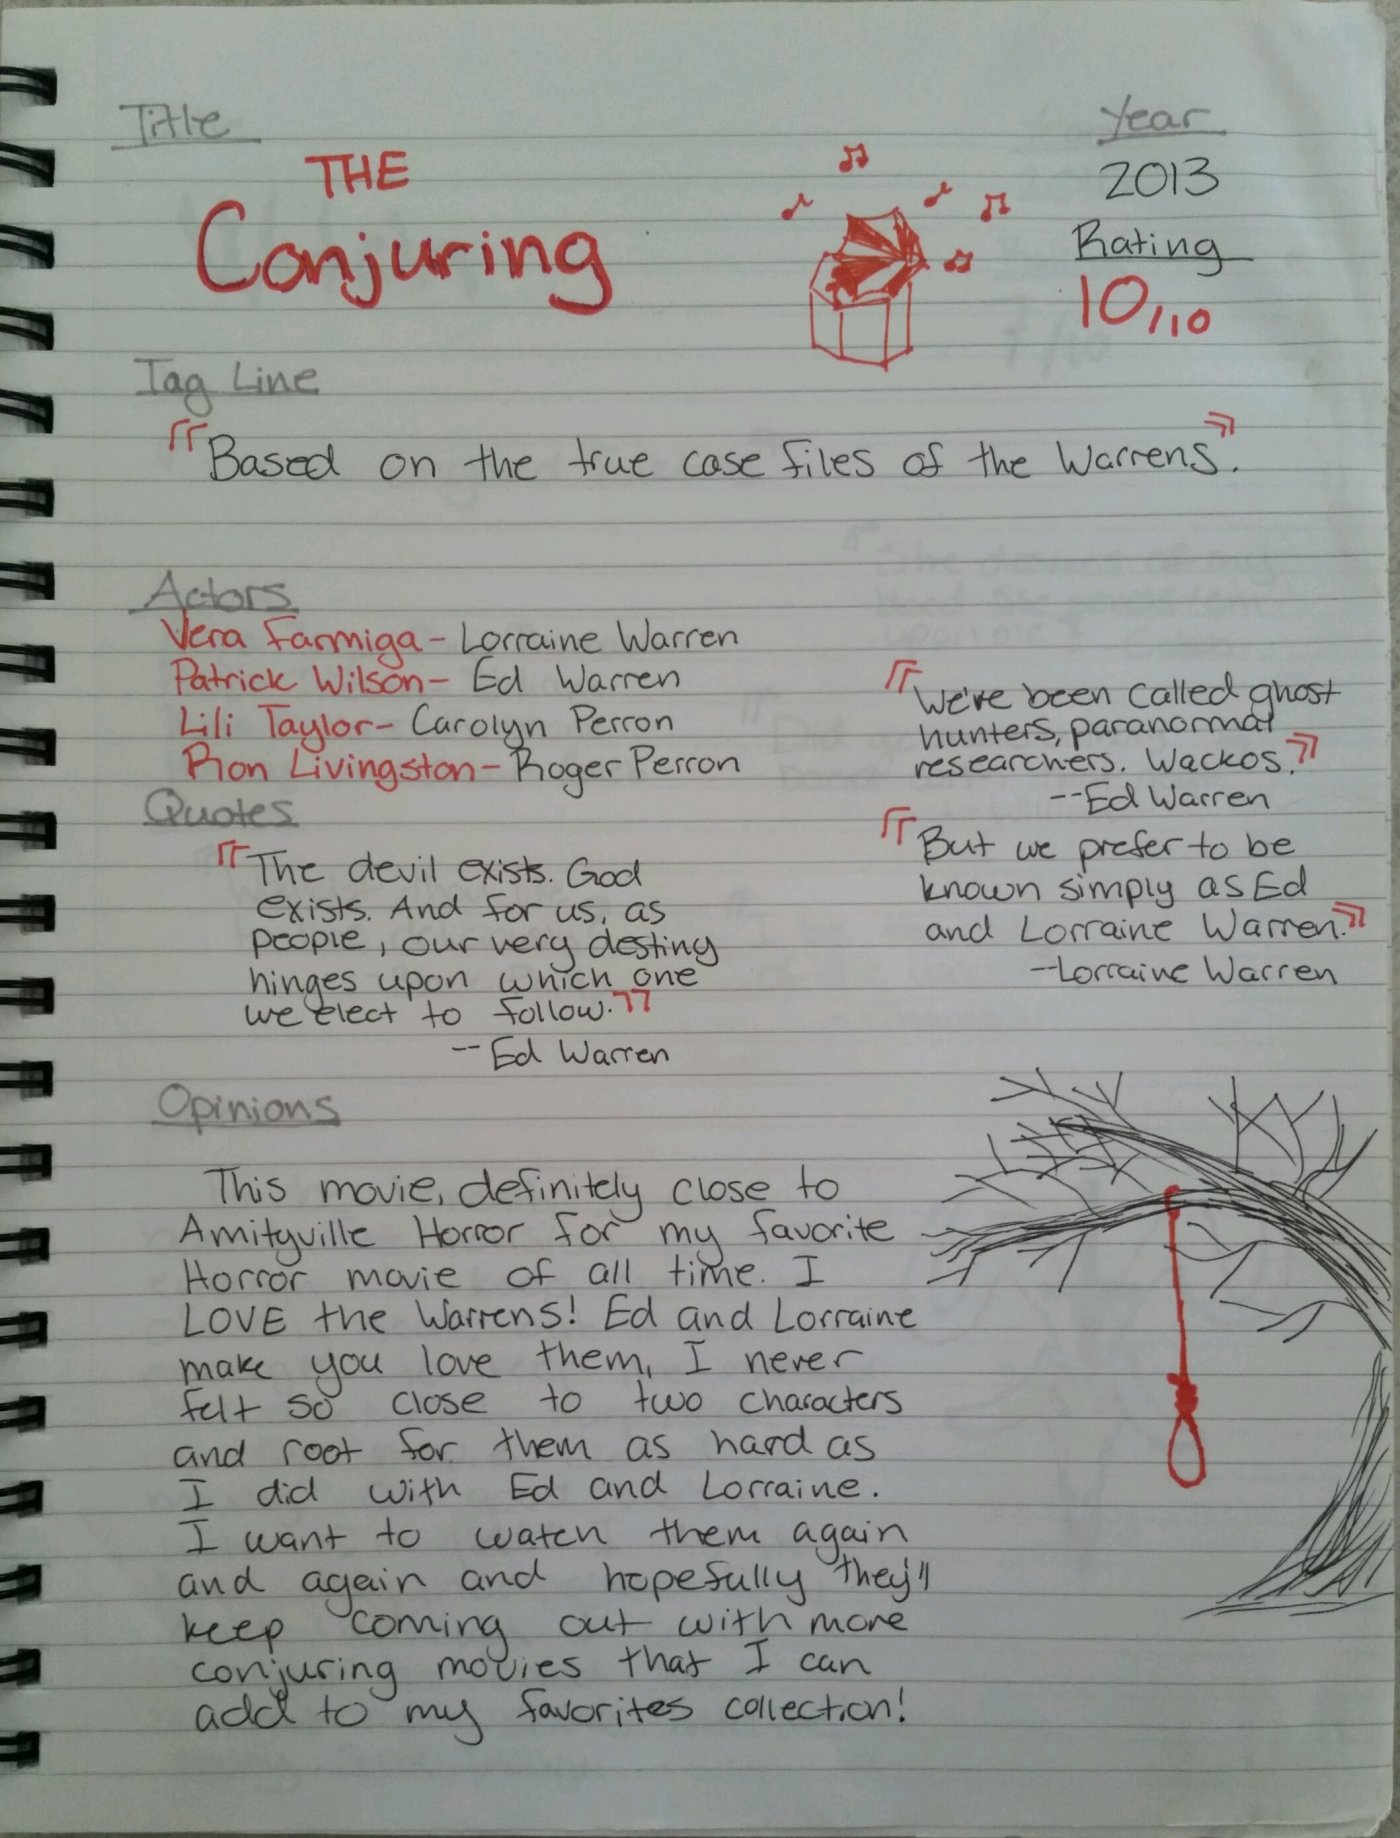 Title
THE
Conjuring
Year
2013
Rating
10/10
Tag Line
"Based on the true case files of the Warrens".
Actors
Vera Farmiga- Lorraine Warren
Patrick Wilson- Ed Warren
Lili Taylor- Carolyn Perron
Ron Livingston- Roger Perron
Quotes
"The devil exists. God
exists. And for us, as
people, our very destiny
hinges upon which one
we elect to follow."
-- Ed Warren
"We've been called ghost
hunters, paranormal
researchers. Wackos."
--Ed Warren
"But we prefer to be
known simply as Ed
and Lorraine Warren."
--Lorraine Warren
Opinions
This movie, definitely close to
Amityville Horror for my favorite
Horror movie of all time. I
LOVE the Warrens! Ed and Lorraine
make you love them, I never
felt so close to two characters
and root for them as hard as
I did with Ed and Lorraine.
I want to watch them again
and again and hopefully they'll
keep coming out with more
conjuring movies that I can
add to my favorites collection!